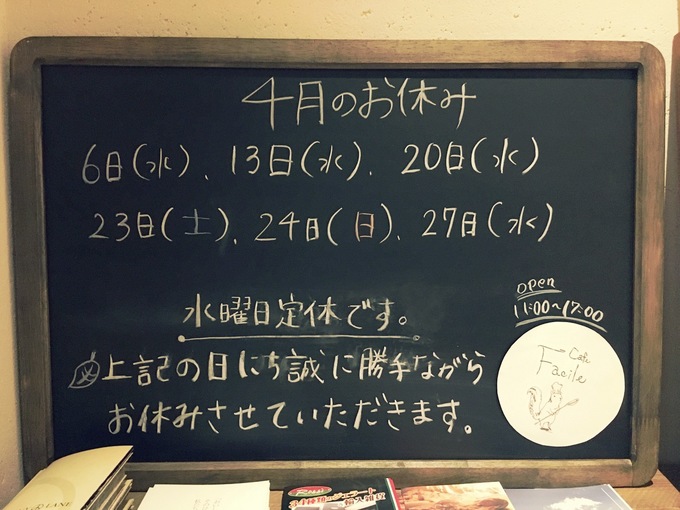 4月のお休み
6日(水)、13日(水)、20日(水)
23日(土)、24日(日)、27日(水)
水曜日定休です。
上記の日にち誠に勝手ながら
お休みさせていただきます。
open
11:00~17:00
Cafe
Facile